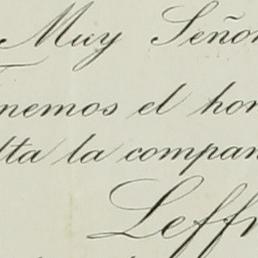 Muy Señor
nemos el hon
tta la compan
Leffr